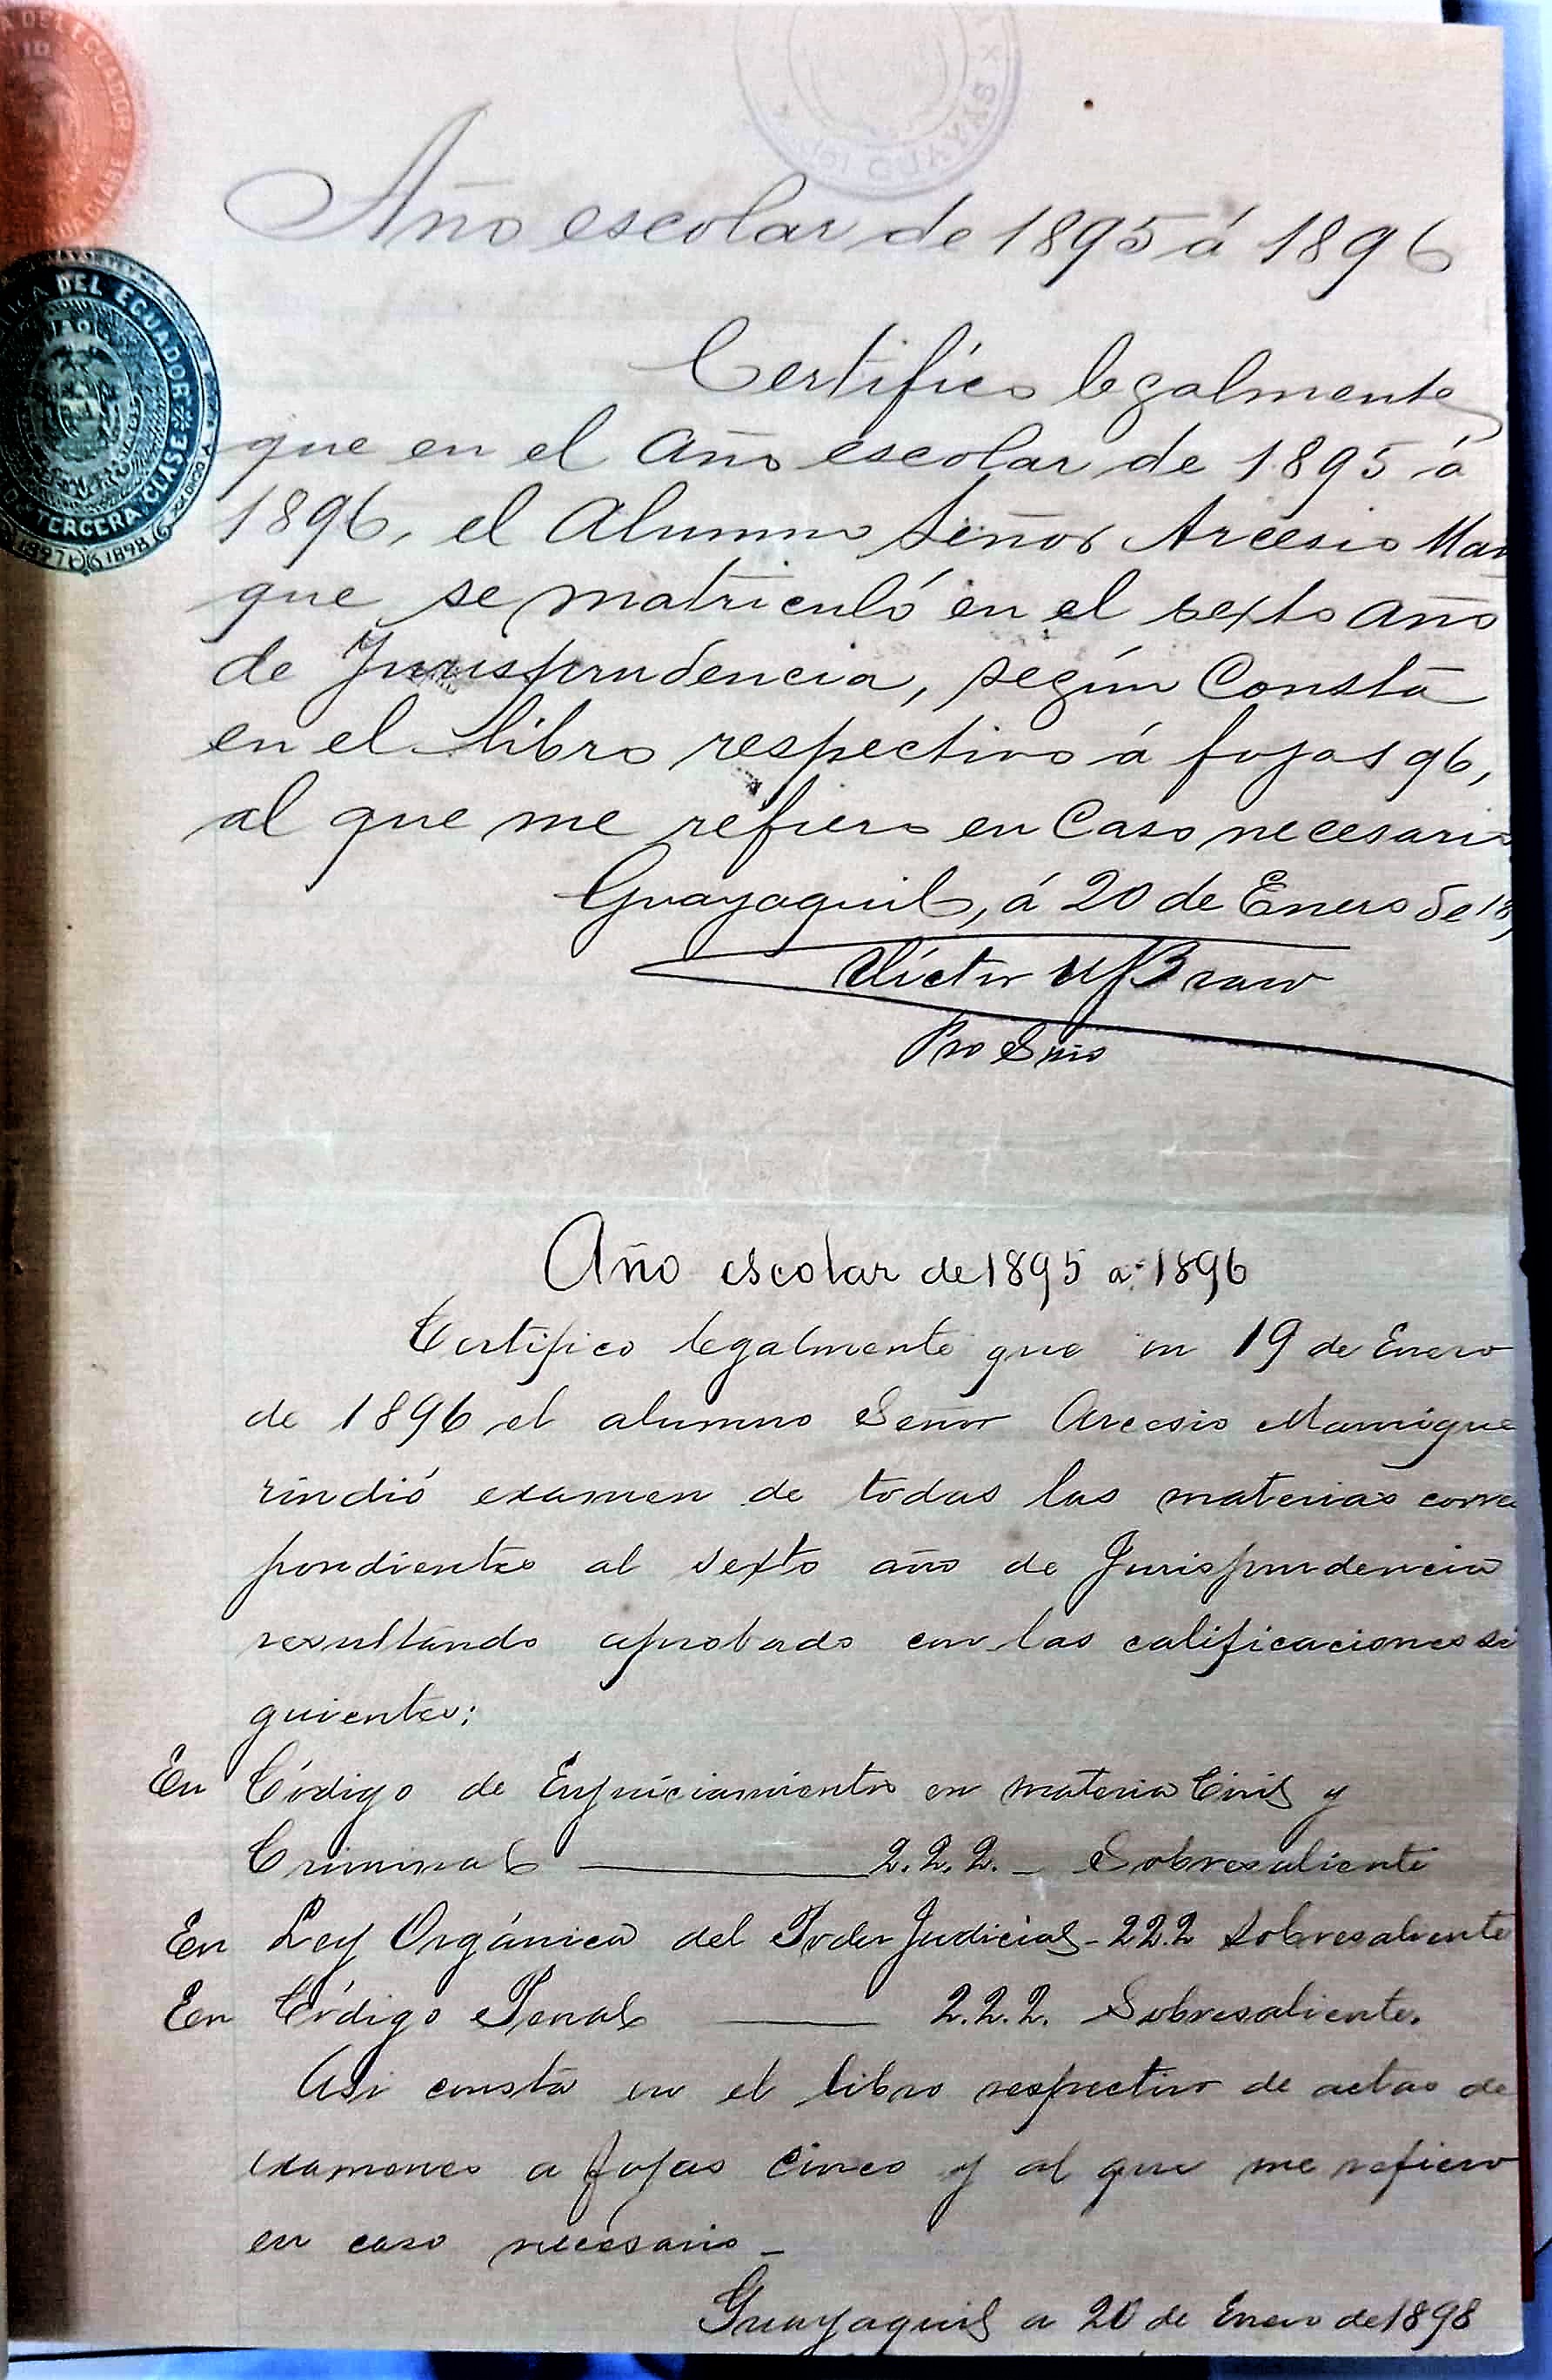 DEL ECUADOR
GUAYAS
DEL ECUADOR
TERCERA CLASE
1897 1898
Año escolar de 1895 á 1896
Certifico legalmente
que en el año escolar de 1895 á
1896, el alumno Señor Arcesio Man
que se matriculó en el sexto año
de Jurisprudencia, según consta
en el libro respectivo á fojas 96,
al que me refiero en caso necesario
Guayaquil, á 20 de Enero de 18
Víctor M Bravo
Pro Srio
Año escolar de 1895 a 1896
Certifico legalmente que en 19 de Enero
de 1896 el alumno Señor Arcesio Manrique
rindió examen de todas las materias corres
pondientes al sexto año de Jurisprudencia
resultando aprobado con las calificaciones si
guientes:
En Código de Enjuiciamientos en materia Civil y
Criminal 2.2.2. - Sobresaliente
En Ley Orgánica del Poder Judicial - 2 2.2 Sobresaliente
En Código Penal 2.2.2. Sobresaliente.
Asi consta en el libro respectivo de actas de
examenes a fojas cinco y al que me refiero
en caso necesario -
Guayaquil a 20 de Enero de 1898